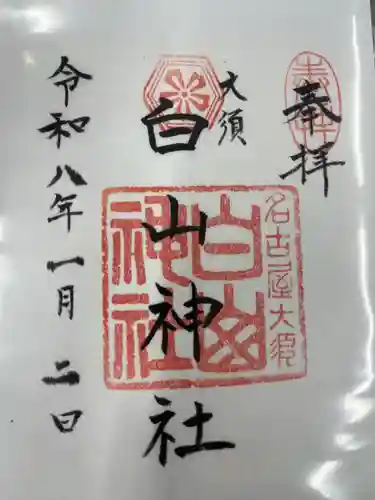 奉拝
大須
白山神社
令和八年一月二日
名古屋大須
白山
神社